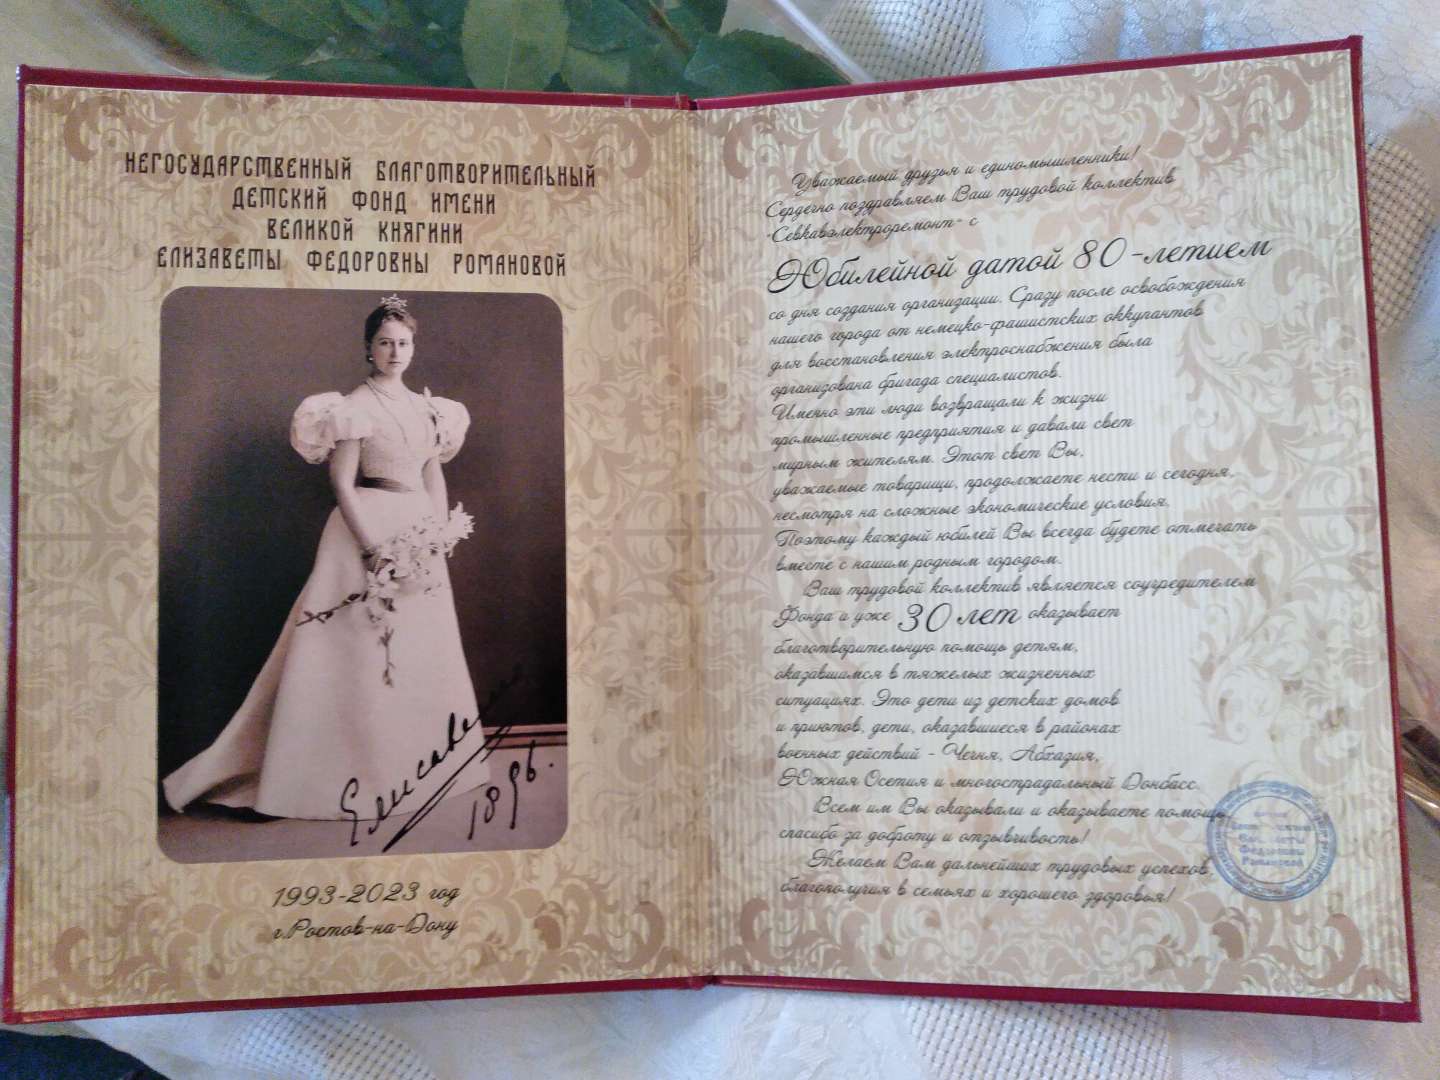 НЕГОСУДАРСТВЕННЫЙ БЛАГОТВОРИТЕЛЬНЫЙ
ДЕТСКИЙ ФОНД ИМЕНИ
ВЕЛИКОЙ КНЯГИНИ
ЕЛИЗАВЕТЫ ФЕДОРОВНЫ РОМАНОВОЙ
Елисавета
1896.
1993-2023 год
г.Ростов-на-Дону
Уважаемый друзья и единомышленники!
Сердечно поздравляем Ваш трудовой коллектив
"Севкавэлектроремонт" с
Юбилейной датой 80-летием
со дня создания организации. Сразу после освобождения
нашего города от немецко-фашистских оккупантов
для восстановления электроснабжения была
организована бригада специалистов.
Именно эти люди возвращали к жизни
промышленные предприятия и давали свет
мирным жителям. Этот свет Вы,
уважаемые товарищи, продолжаете нести и сегодня,
несмотря на сложные экономические условия.
Поэтому каждый юбилей Вы всегда будете отмечать
вместе с нашим родным городом.
Ваш трудовой коллектив является соучредителем
Фонда и уже 30 лет оказывает
благотворительную помощь детям,
оказавшимся в тяжелых жизненных
ситуациях. Это дети из детских домов
и приютов, дети, оказавшиеся в районах
военных действий - Чечня, Абхазия,
Южная Осетия и многострадальный Донбасс.
Всем им Вы оказывали и оказываете помощь,
спасибо за доброту и отзывчивость!
Желаем Вам дальнейших трудовых успехов,
благополучия в семьях и хорошего здоровья!
Федоровны
Романовой